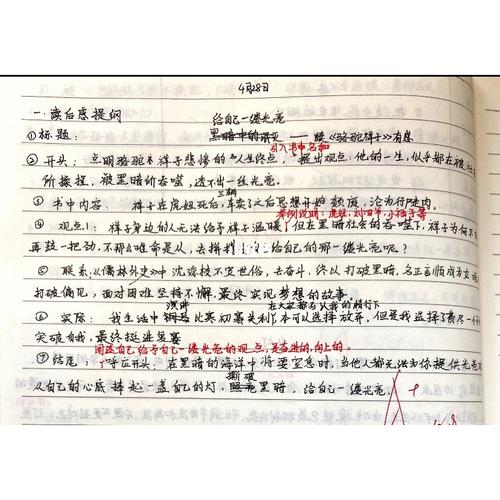 4月28日
一.读后感提纲
给自己一缕光亮
①标题:黑暗中的 —— 读《骆驼祥子》有感
引入书中名和
②开头:点明骆驼祥子悲惨的人生终点,提出观点.他的一生,似乎都在被
所操控,被黑暗所吞噬,透不出一丝光亮.
③书中内容:祥子在虎妞死后,车卖了之后思想开始颓废,沦为行尸走肉.
举例说明:虎妞,刘四爷,小福子等
④观点1:祥子身边的人无法给予祥子温暖,但在黑暗社会的吞噬下,祥子为何不
再拉一把劲,不那么唯命是从,去拼找自己给自己的那一缕光亮呢?
⑤联系《儒林外史》中沈琼枝不宜世俗,去奋斗,终以打破黑暗,名正言顺成为
打破偏见,面对困难坚持不懈最终实现梦想的故事.
演讲 在大家都否认我的情况下
⑥实际:我生活中比赛初赛失利,本可以选择放弃,但是我选择了
突破自我.最终挺进复赛
因此自己给予自己一缕光亮的观点,是奋进的,向上的.
⑦结尾:呼应开头:在黑暗的海洋中将要窒息时,当他人都无法为你提供光亮
撕破
从自己的心底捧起一盏自己的灯,黑暗.给自己一缕光亮.